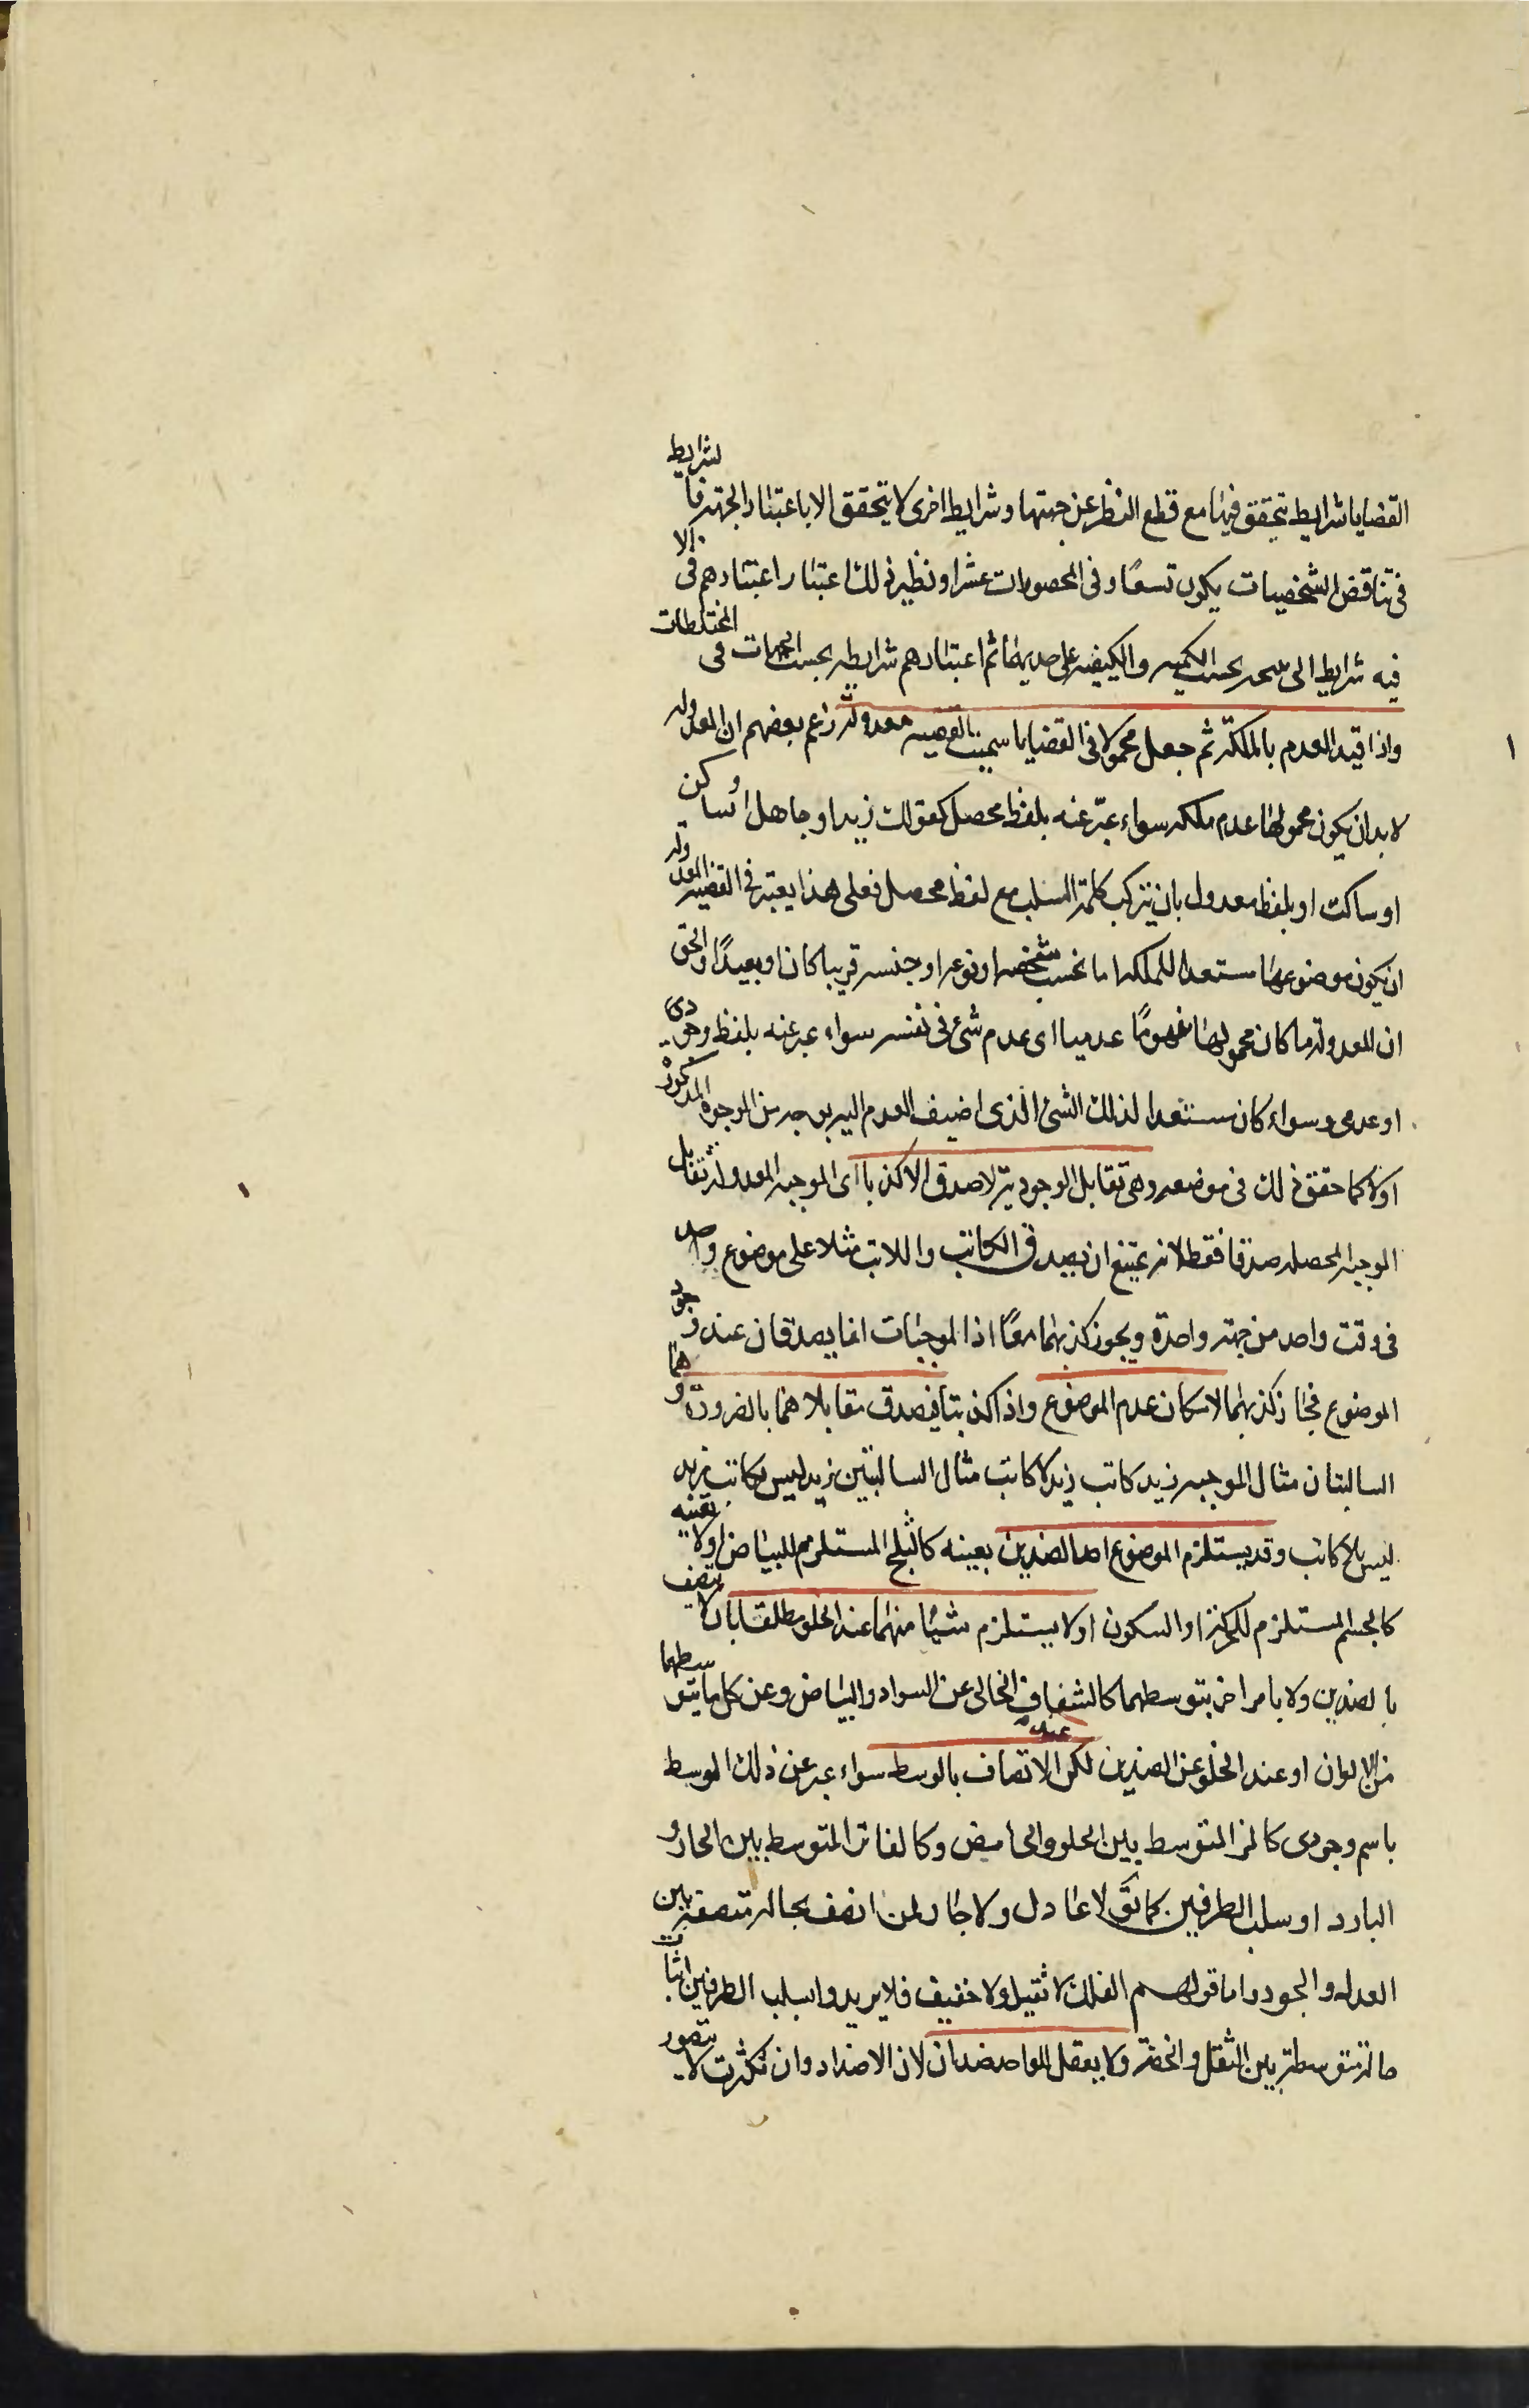 القضايا شرايط يتحقق فيها مع قطع النظر عن جهتها وشرايط اخرى لا يتحقق الا باعتبار الجهة فالشرايط
في تناقض الشخصيات يكون تسعا وفي المحصورات عشرا ونظير ذلك اعتبار اعتبارهم في الا
فيه شرايط الى بحسب الكمية والكيفية على حديهما ثم اعتبارهم شرايط بحسب الجهات في المختلطات
واذا قيد العدم بالملكة ثم جعل محمولا في القضايا سميت القضية معدولة زعم بعضهم ان المعدولة
لا بد ان يكون محمولها عدم ملكة سواء عبر عنه بلفظ محصل كقولك زيد او جاهل او ساكن
او ساكت او بلفظ معدول بان يتركب كلمة السلب مع لفظ محصل فعلى هذا يعتبر في القضية المعدولة
ان يكون موضوعها مستعدا للملكة اما بحسب شخصه او نوعه او جنسه قريبا كان او بعيدا والحق
ان المعدولة ما كان محمولها مفهوما عدميا اى عدم شئ في نفسه سواء عبر عنه بلفظ وجودى
او عدمى وسواء كان مستعدا لذلك الشئ الذى اضيف العدم اليه بوجه من الوجوه المذكورة
اولا كما حقق ذلك في موضعه وهى تقابل الوجودية لا صدق الا كذبا اى الموجبة المعدولة تقابل
الموجبة المحصلة صدقا فقط لانه يمتنع ان يصدق الكاتب واللاكاتب مثلا على موضوع واحد
في وقت واحد من جهة واحدة ويجوز كذبهما معا اذ الموجبات انما يصدقان عند وجود
الموضوع فجاز كذبهما لامكان عدم الموضوع واذا كذبتا فيصدق مقابلاهما بالضرورة وهما
السالبتان مثال الموجبة زيد كاتب زيد لا كاتب مثال السالبتين زيد ليس بكاتب زيد
ليس بلا كاتب وقد يستلزم الموضوع احد الضدين بعينه كالثلج المستلزم للبياض اولا بعينه
كالجسم المستلزم للحركة او السكون او لا يستلزم شيئا منهما عند الخلو مطلقا بان لا يتصف
بالضدين ولا بامر اخر يتوسطهما كالشفاف الخالى عن السواد والبياض وعن كل ما يتوسطهما
من الالوان او عند الخلو عن الضدين لكن الاتصاف بالوسط سواء عبر عن ذلك الوسط
باسم وجودى كالمز المتوسط بين الحلو والحامض وكالفاتر المتوسط بين الحار و
البارد او سلب الطرفين كما يق لا عادل ولا جائر لمن اتصف بحالة متوسطة بين
العدل والجور واما قولهم الفلك لا ثقيل ولا خفيف فلا يريدوا بسلب الطرفين اثبات
حالة متوسطة بين الثقل والخفة ولا يعقل للواحد ضدان لان الاضداد وان تكثرت لا يتصور